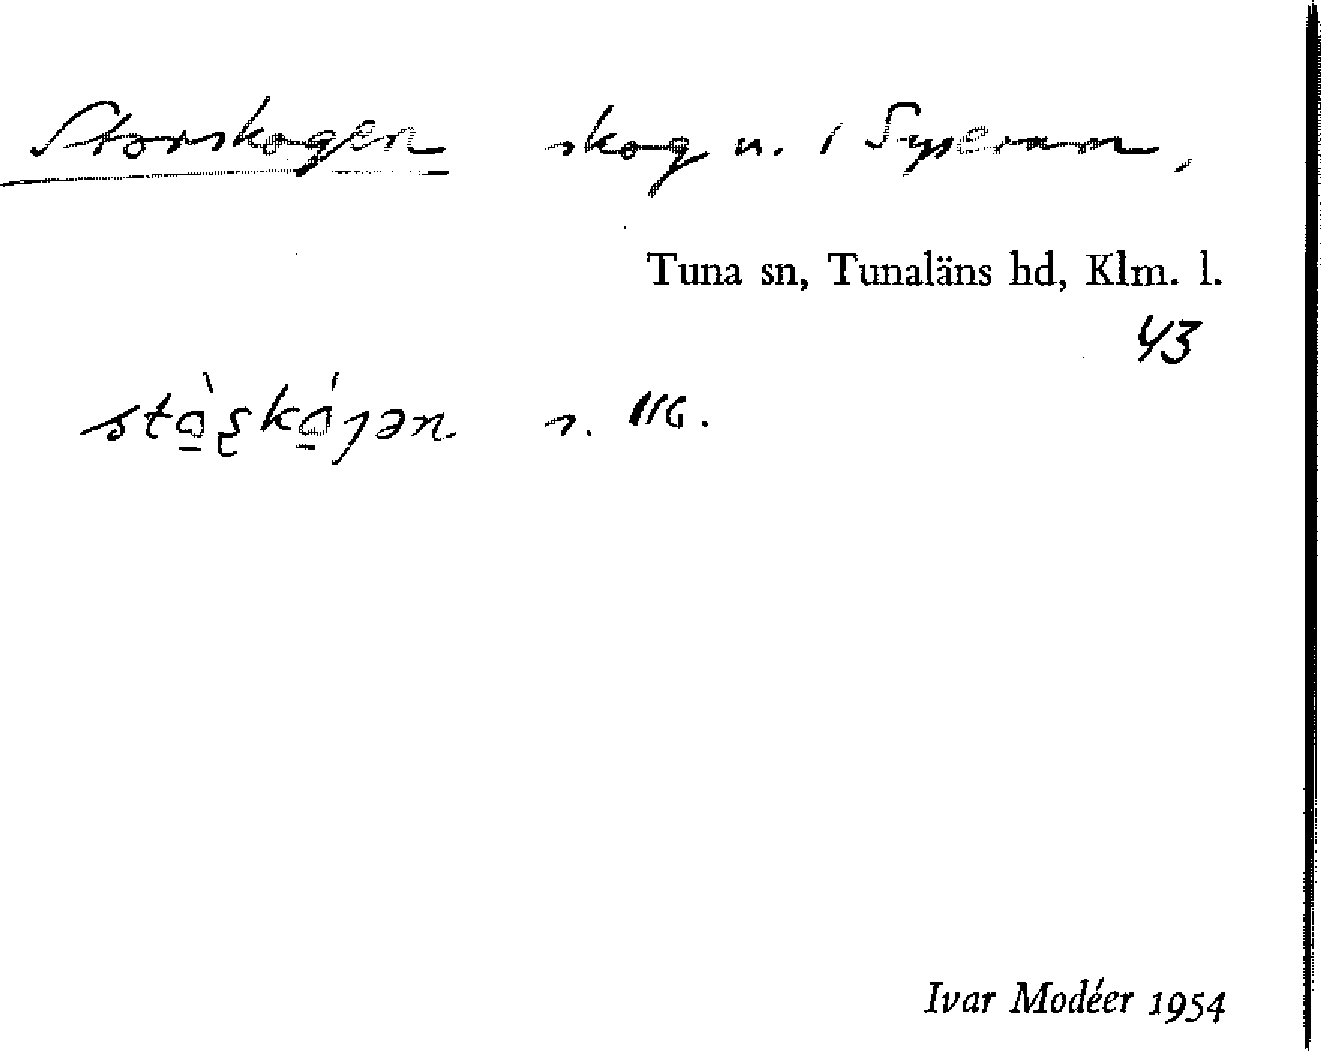 Storskogen skog n. i Syserum,
Tuna sn, Tunaläns hd, Klm. l.
43
stɑ̀ʂkɑ́ȷən.
Ivar Modéer 1954